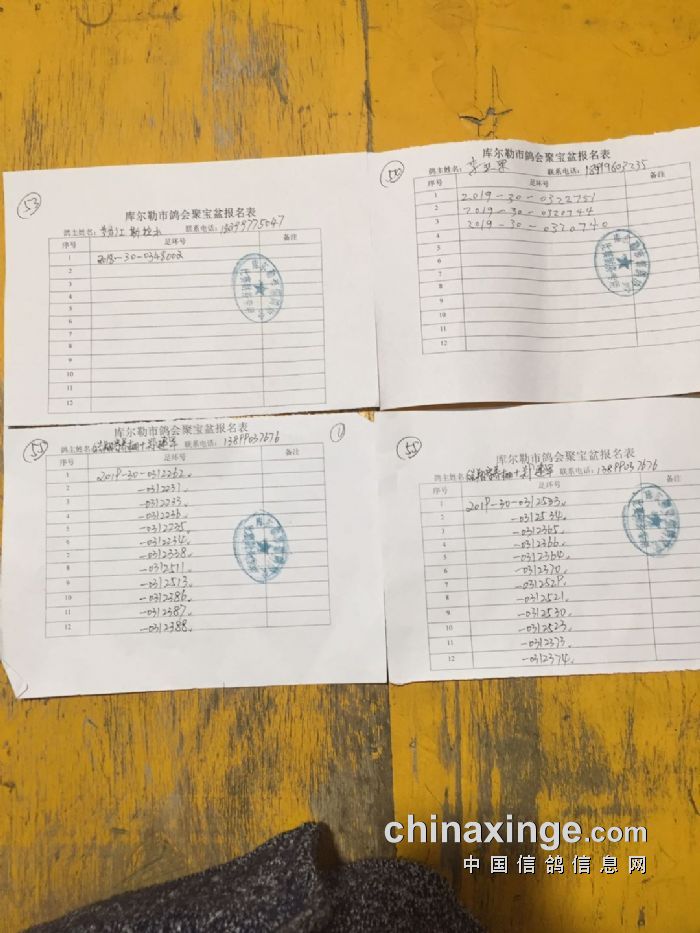 53
库尔勒市鸽会聚宝盆报名表
鸽主姓名: 联系电话:
序号 足环号 备注
1 2018-30-0348002
2
3
4
5
6
7
8
9
10
11
12
库尔勒市鸽会聚宝盆报名表
鸽主姓名: 联系电话:
序号 足环号 备注
1 2019-30-0322751
2 2019-30-0320744
3 2019-30-0320740
4
5
6
7
8
9
10
11
12
55
库尔勒市鸽会聚宝盆报名表
鸽主姓名: 联系电话: 13899037676
序号 足环号 备注
1 2019-30-0312262
2 -0312231
3 -0312233
4 -0312236
5 -0312235
6 -0312234
7 -0312338
8 -0312511
9 -0312513
10 -0312386
11 -0312387
12 -0312388
55
库尔勒市鸽会聚宝盆报名表
鸽主姓名: 联系电话: 13899037676
序号 足环号 备注
1 2019-30-0312533
2 -0312534
3 -0312365
4 -0312366
5 -0312364
6 -0312370
7 -0312529
8 -0312521
9 -0312530
10 -0312523
11 -0312373
12 -0312374
chinaxinge.com
中国信鸽信息网